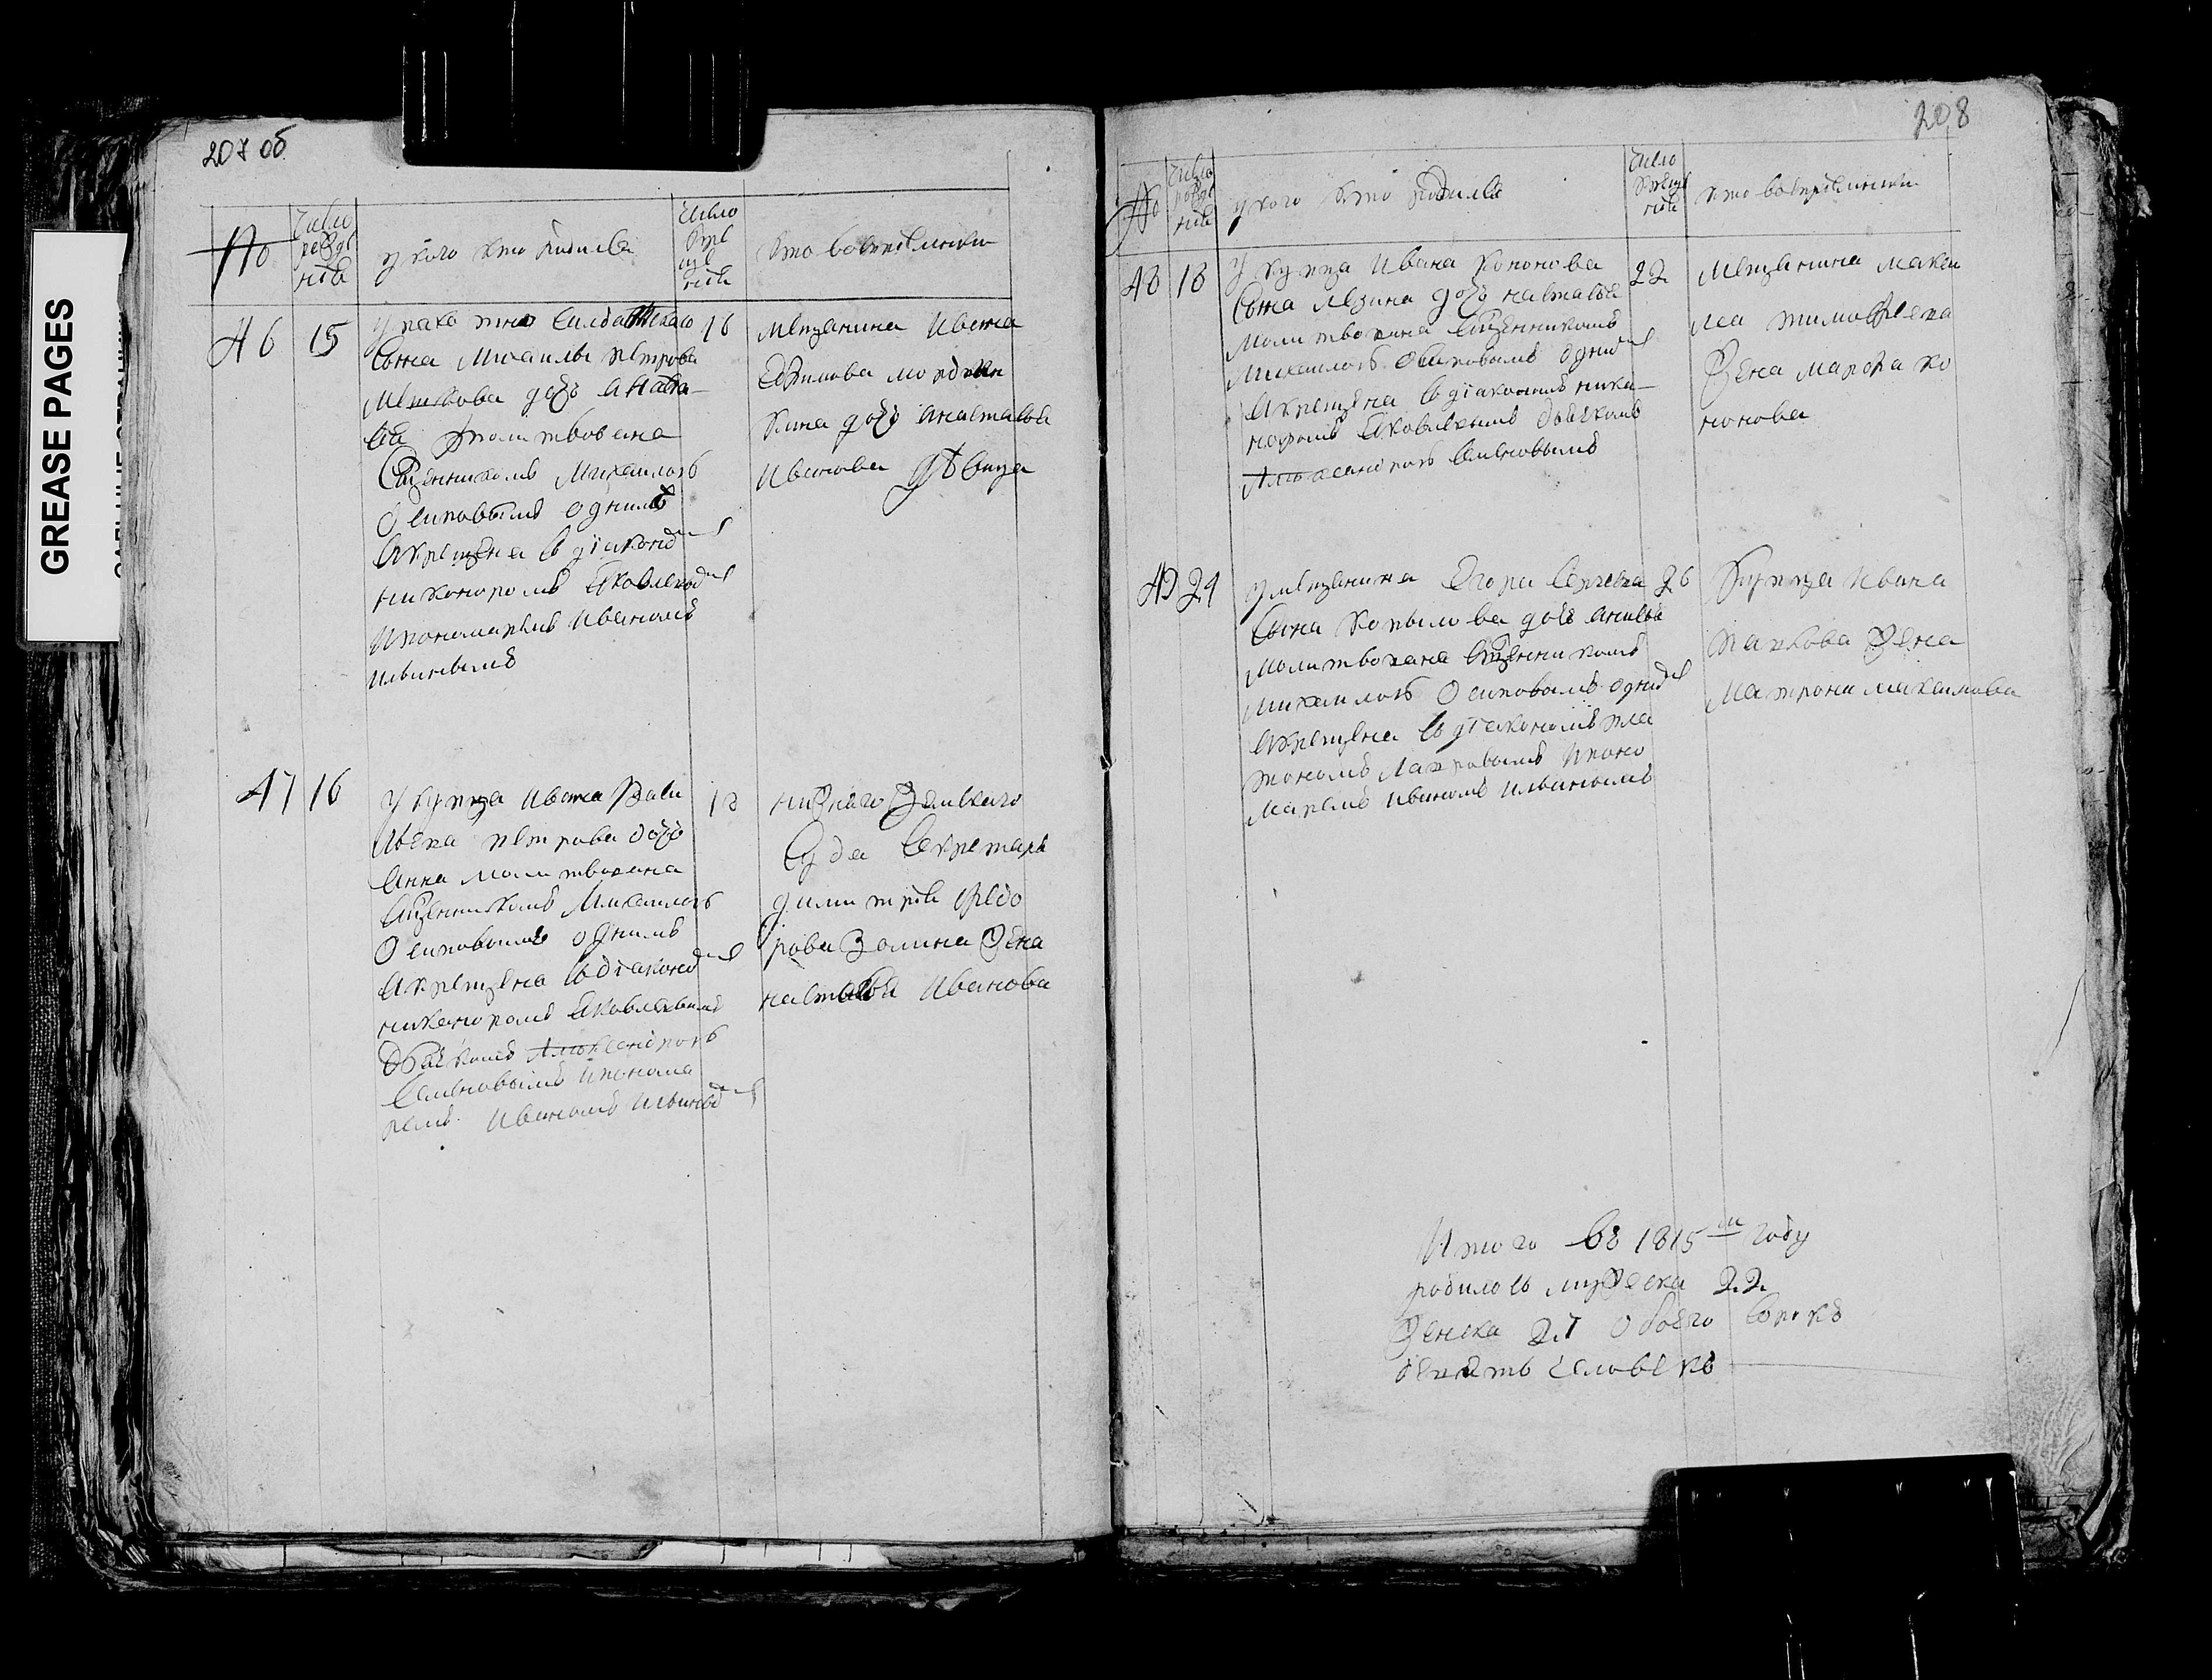 GREASE PAGES
207 об
№
Число рождения
у кого кто родился
Число крещения
кто восприемники
46 15
сына Михаилы петрова
дочь
молитвована
Священникомъ Михаиломъ
Осиповымъ однимъ
Акрещена съ диакономъ
никоноромъ Яковлевымъ
Ипономаремъ Иваномъ
Ильинымъ
16
мещанина Ивана
Ефимова
кина дочь Анастасья
Иванова дѣвица
47 16
У купца Ивана Васи
льева петрова дочь
Анна молитвована
Священникомъ Михаиломъ
Осиповымъ однимъ
Акрещена съ диакономъ
никаноромъ Яковлевымъ
Дьячкомъ Алексендромъ
Семеновымъ Ипонома
ремъ Иваномъ Ильинымъ
18
нижнаго Земскаго
Суда Секретаря
димитрия Федо
рова Зомина Жена
настасья Иванова
208
№
Число рождения
у кого кто родился
Число крещения
кто восприемники
48 18
У купца Ивана Кононова
Сына дочь настасья
Молитвована Священникомъ
Михаиломъ Осиповымъ однимъ
Акрещена съ диакономъ ника
норомъ Яковлевымъ дьячкомъ
Алексендромъ Семеновымъ
22
Мещанина макси
ма тимофеева
Жена марфа ко
нонова
49 24
у мещанина Егора Сергеева
Сына Копылова дочь анисья
Молитвована Священникомъ
Михаиломъ Осиповымъ однимъ
Акрещена съ диакономъ пла
тономъ Ипоно
маремъ Иваномъ Ильинымъ
26
Купца Ивана
Жена
Матрона михаилова
Итого въ 1815 м году
родилось мужеска 22
Женска 27 Обоего Сорокъ
девять человекъ